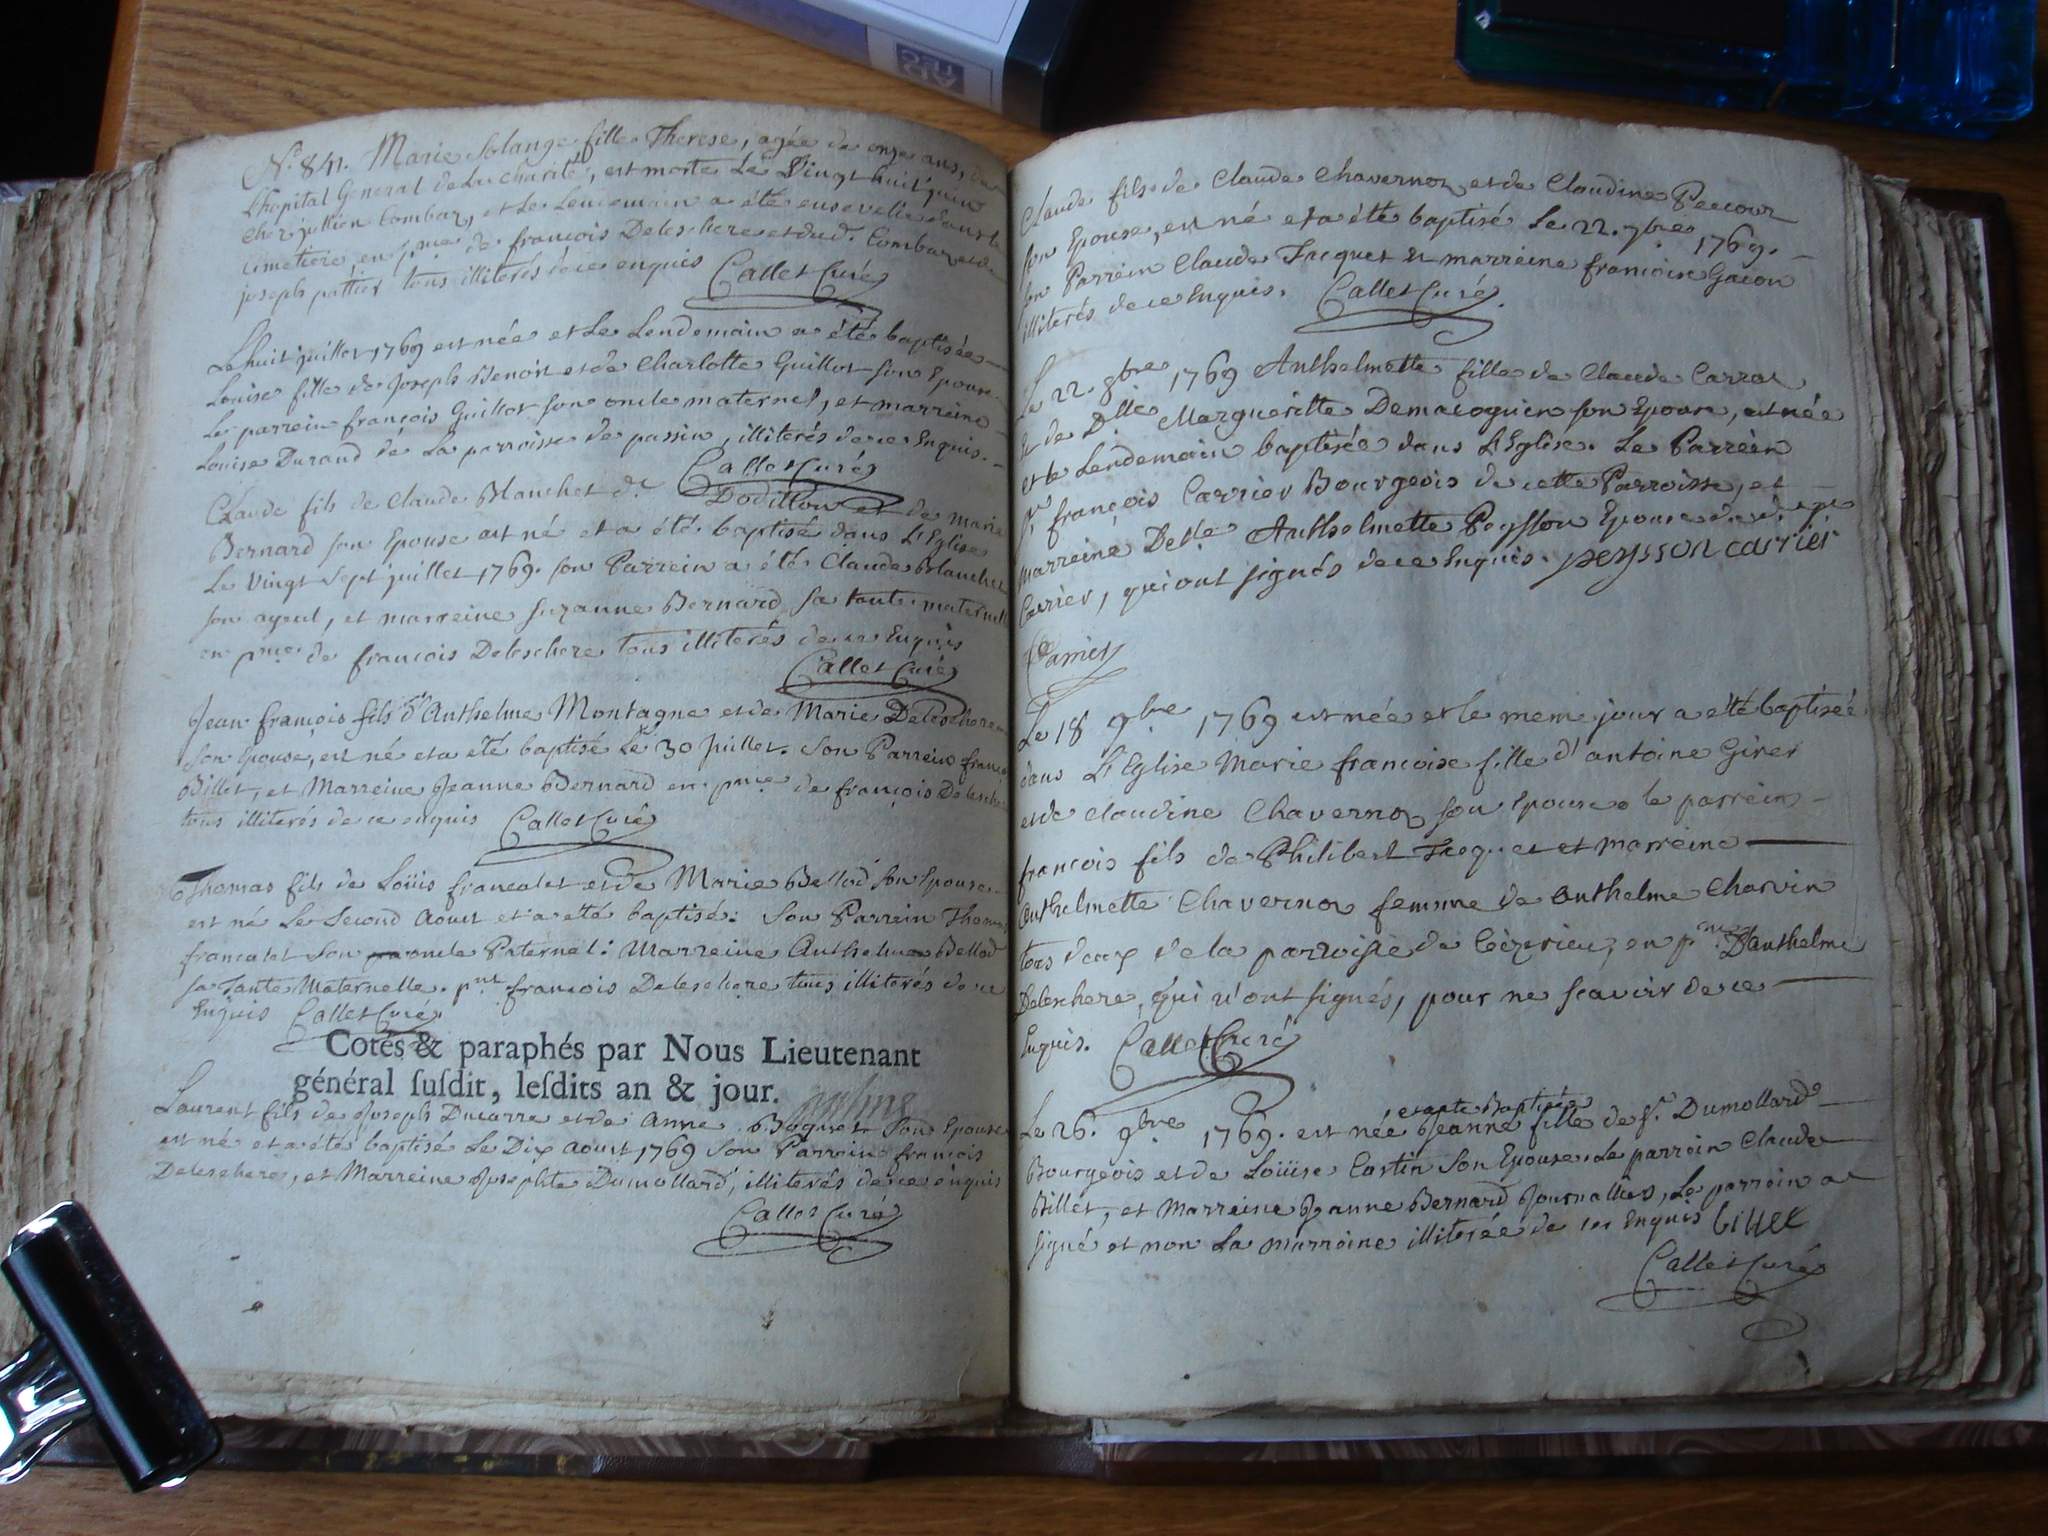 N.° 841. Marie Solange fille Therese, agée de onze ans, de
L'hopital General de La Charité, est morte Le Vingt huit juin
chez jullien Combaz, et Le Lendemain a été ensevelie dans le
cimetiere en pnce de françois Deleschere et dud. Combaz et de
joseph pattier tous illiterés de ce enquis Callet Curé
Le huit juillet 1769 est née et Le Lendemain a été baptisée
Louise fille de Joseph Benoit et de Charlotte Guillot son Epouse
Le parrein françois Guillot son oncle maternel, et marreine
Louise Durand de La parroisse de passin, illiterés de ce Enquis.
Callet Curé
Claude fils de Claude Blanchet d.t Dodillon et de marie
Bernard son Epouse est né et a été baptisé dans L'Eglise
Le vingt sept juillet 1769. son Parrein a été Claude Blanchet
son ayeul, et marreine suzanne Bernard sa tante maternelle
en pnce de françois Deleschere tous illiterés de ce Enquis
Callet Curé
Jean françois fils d'Anthelme Montagne et de Marie Deleschere
son Epouse, est né et a été baptisé Le 30 Juillet. Son Parrein françois
Billet, et Marreine Jeanne Bernard en pnce de françois Delescher
tous illiterés de ce enquis Callet Curé
Thomas fils de Loüis francalet et de Marie Bellod son Epouse
est né Le Second Aoust et a été baptisé: Son Parrein Thomas
francalet son oncle Paternel: Marreine Anthelme Bellod
sa Tante Maternelle. pnt françois Deleschere tous illiterés de ce
Enquis Callet Curé
Cotés & paraphés par Nous Lieutenant
général ſuſdit, leſdits an & jour.
Laurent fils de Joseph Ducarre et de Anne Boquet son Epouse
est né et a étés baptisé Le Dix Aoust 1769 Son Parrein françois
Deleschere, et Marreine Josephte Dumollard, illiterés de ce enquis
Callet Curé
Claude fils de Claude Chavernoz et de Claudine Pecour
son Epouse, est né et a été baptisé Le 22. 7bre 1769.
son Parrein Claude Jacquet et marreine françoise Gacon
illiterés de ce Enquis. Callet Curé
Le 22 8bre 1769 Anthelmette fille de Claude Carraz
et de Dlle Margueritte Demacoguien son Epouse, est née
et le Lendemain baptisée dans L'Eglise. Le Parrein
Sr. françois Carrier Bourgeois de cette Parroisse, et
marreine Delle Anthelmette Peysson Epouse du d. Sr.
Carrier, qui ont signés de ce Enquis. peysson carrier
Carrier
Le 18 9bre 1769 est née et le meme jour a été baptisée
dans L'Eglise Marie francoise fille d'antoine Girer
et de Claudine Chavernoz son Epouse le parrein
françois fils de Philibert Jacquet et marreine
Anthelmette Chavernoz femme de Anthelme Charvin
tous deux de la parroisse de Ceÿzerieu, en pnce D'Anthelme
Deleschere, qui n'ont signés, pour ne scavoir de ce
Enquis. Callet Curé
et a été Baptisée
Le 26. 9bre 1769. est née Jeanne fille de Sr. Dumollard
Bourgeois et de Loüise Costin son Epouse. Le parrein Claude
Billet, et Marreine Jeanne Bernard Journalliers, Le parrein a
signé et non La marreine illiterée de ce Enquis billet
Callet Curé